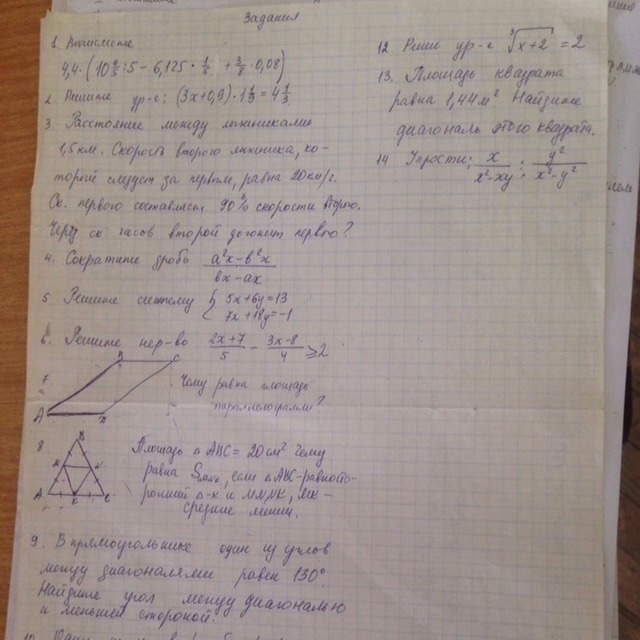 Задания
1. Вычислите
4,4·(10 :5 - 6,125 · + 3/8 ·0,08)
2. Решите ур-е: (3x+0,9)·1 = 4 1/3
3. Расстояние между лыжниками
1,5 км. Скорость второго лыжника, ко-
торый следует за первым, равна 20 км/ч.
Ск. первого составляет 90% скорости второго.
Через ск часов второй догонит первого?
4. Сократите дробь a²x-b²x / bx-ax
5. Решите систему { 5x+6y=13
7x+18y=-1
6. Решите нер-во 2x+7 / 5 - 3x-8 / 4 ≥2
7
B
C
A
D
Чему равна площадь
параллелограмма?
8.
B
M
N
A
K
C
Площадь △ ABC = 20см² Чему
равна S, если △ ABC-равносто-
ронний △-к и MN, NK, MK -
средние линии.
9. В прямоугольнике один из углов
между диагоналями равен 130°
Найдите угол между диагональю
и меньшей стороной.
10.
12. Реши ур-е ³√x+2 = 2
13. Площадь квадрата
равна 1,44м² Найдите
диагональ этого квадрата.
14 Упрости: x / x²-xy : y² / x²-y²